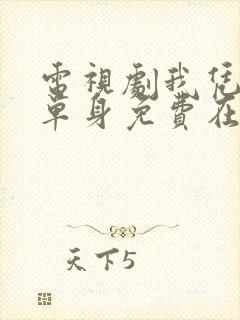 電視劇我凭
單身免費在
天下5